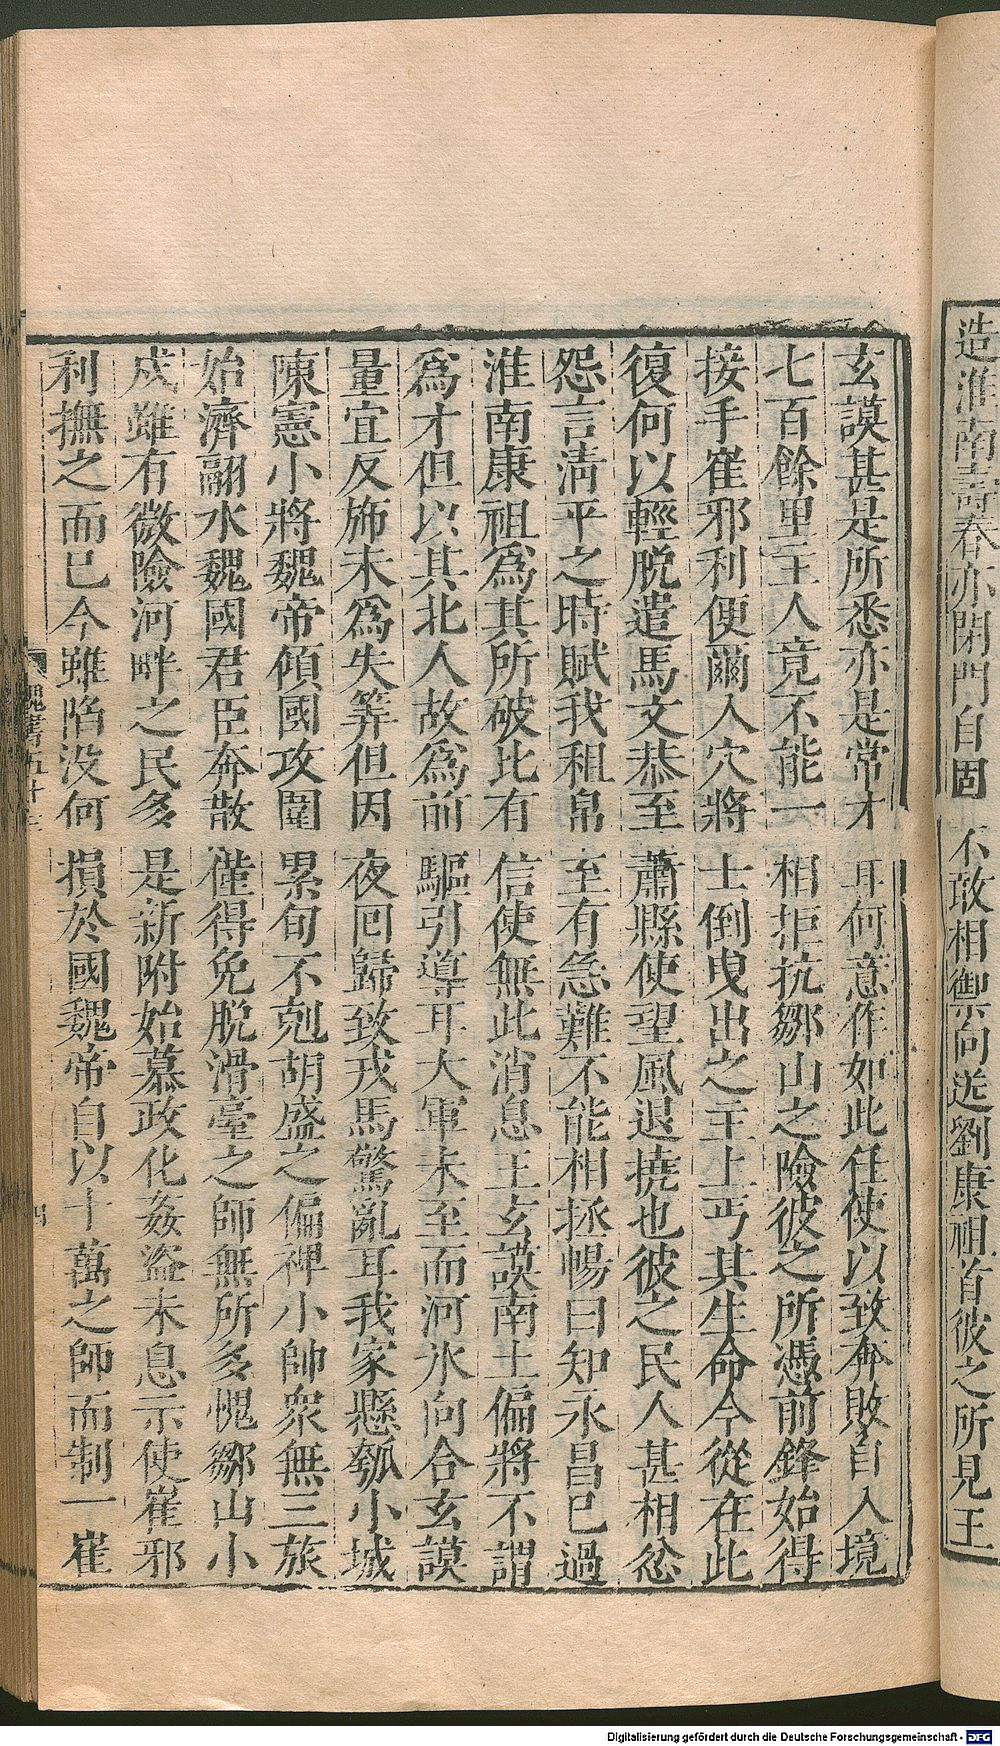 造淮南壽春亦閉門自固不敢相禦向送劉康祖首彼之所見王
玄謨甚是所悉亦是常才耳何意作如此任使以致奔敗自入境
七百餘里主人竟不能一相拒抗鄒山之險彼之所憑前鋒始得
接手崔邪利便藏入穴將士倒曳出之主上丐其生命今從在此
復何以輕脫遣馬文恭至蕭縣使望風退撓也彼之民人甚相忿
怨言淸平之時賦我租帛至有急難不能相拯暢曰知永昌已過
淮南康祖爲其所破比有信使無此消息王玄謨南土偏將不謂
爲才但以其北人故爲前驅引導耳大軍未至而河冰向合玄謨
量宜反斾未爲失筭但因夜囘歸致戎馬驚亂耳我家懸瓠小城
陳憲小將魏帝傾國攻圍累旬不剋胡盛之偏裨小帥衆無三旅
始濟翮水魏國君臣奔散僅得免脫滑臺之師無所多愧鄒山小
戍雖有微險河畔之民多是新附始慕政化姦盜未息示使崔邪
利撫之而已今雖陷没何損於國魏帝自以十萬之師而制一崔
魏書五十三
四
Digitalisierung gefördert durch die Deutsche Forschungsgemeinschaft - DFG